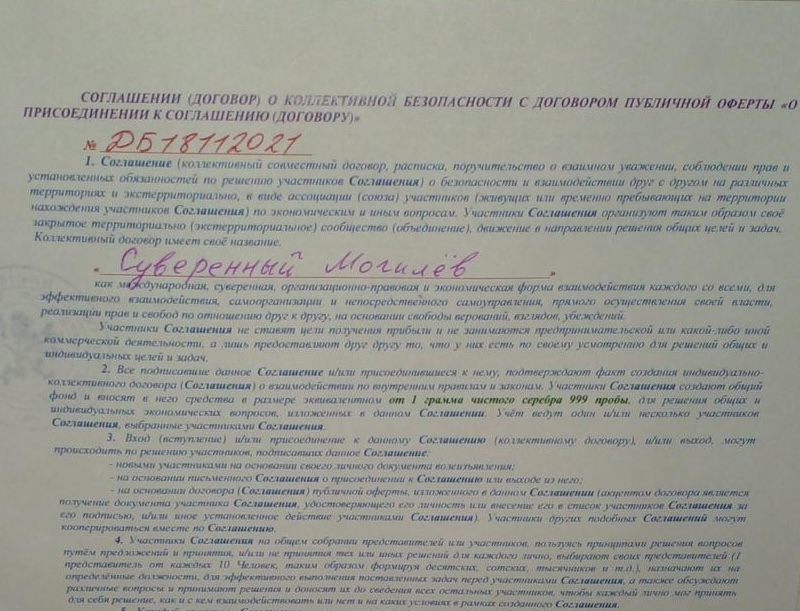 СОГЛАШЕНИИ (ДОГОВОР) О КОЛЛЕКТИВНОЙ БЕЗОПАСНОСТИ С ДОГОВОРОМ ПУБЛИЧНОЙ ОФЕРТЫ «О
ПРИСОЕДИНЕНИИ К СОГЛАШЕНИЮ (ДОГОВОРУ)»
№ ДБ18112021
1. Соглашение (коллективный совместный договор, расписка, поручительство о взаимном уважении, соблюдении прав и
установленных обязанностей по решению участников Соглашения) о безопасности и взаимодействии друг с другом на различных
территориях и экстерриториально, в виде ассоциации (союза) участников (живущих или временно пребывающих на территории
нахождения участников Соглашения) по экономическим и иным вопросам. Участники Соглашения организуют таким образом своё
закрытое территориально (экстерриториальное) сообщество (объединение), движение в направлении решения общих целей и задач.
Коллективный договор имеет своё название.
„ Суверенный Могилёв "
как международная, суверенная, организационно-правовая и экономическая форма взаимодействия каждого со всеми, для
эффективного взаимодействия, самоорганизации и непосредственного самоуправления, прямого осуществления своей власти,
реализации прав и свобод по отношению друг к другу, на основании свободы верований, взглядов, убеждений.
Участники Соглашения не ставят цели получения прибыли и не занимаются предпринимательской или какой-либо иной
коммерческой деятельности, а лишь предоставляют друг другу то, что у них есть по своему усмотрению для решений общих и
индивидуальных целей и задач.
2. Все подписавшие данное Соглашение и/или присоединившиеся к нему, подтверждают факт создания индивидуально-
коллективного договора (Соглашения) о взаимодействии по внутренним правилам и законам. Участники Соглашения создают общий
фонд и вносят в него средства в размере эквивалентном от 1 грамма чистого серебра 999 пробы, для решения общих и
индивидуальных экономических вопросов, изложенных в данном Соглашении. Учёт ведут один и/или несколько участников
Соглашения, выбранные участниками Соглашения.
3. Вход (вступление) и/или присоединение к данному Соглашению (коллективному договору), и/или выход, могут
происходить по решению участников, подписавших данное Соглашение:
- новыми участниками на основании своего личного документа волеизъявления;
- на основании письменного Соглашения о присоединении к Соглашению или выходе из него;
- на основании договора (Соглашения) публичной оферты, изложенного в данном Соглашении (акцептом договора является
получение документа участника Соглашения, удостоверяющего его личность или внесение его в список участников Соглашения за
его подписью, и/или иное установленное действие участниками Соглашения). Участники других подобных Соглашений могут
кооперироваться вместе по Соглашению.
4. Участники Соглашения на общем собрании представителей или участников, пользуясь принципами решения вопросов
путём предложений и принятия, и/или не принятия тех или иных решений для каждого лично, выбирают своих представителей (1
представитель от каждых 10 Человек, таким образом формируя десятских, сотских, тысячников и т.д.), назначают их на
определённые должности, для эффективного выполнения поставленных задач перед участниками Соглашения, а также обсуждают
различные вопросы и принимают решения и доносят их до сведения всех остальных участников, чтобы каждый лично мог принять
для себя решение, как и с кем взаимодействовать или нет и на каких условиях в рамках созданного Соглашения.